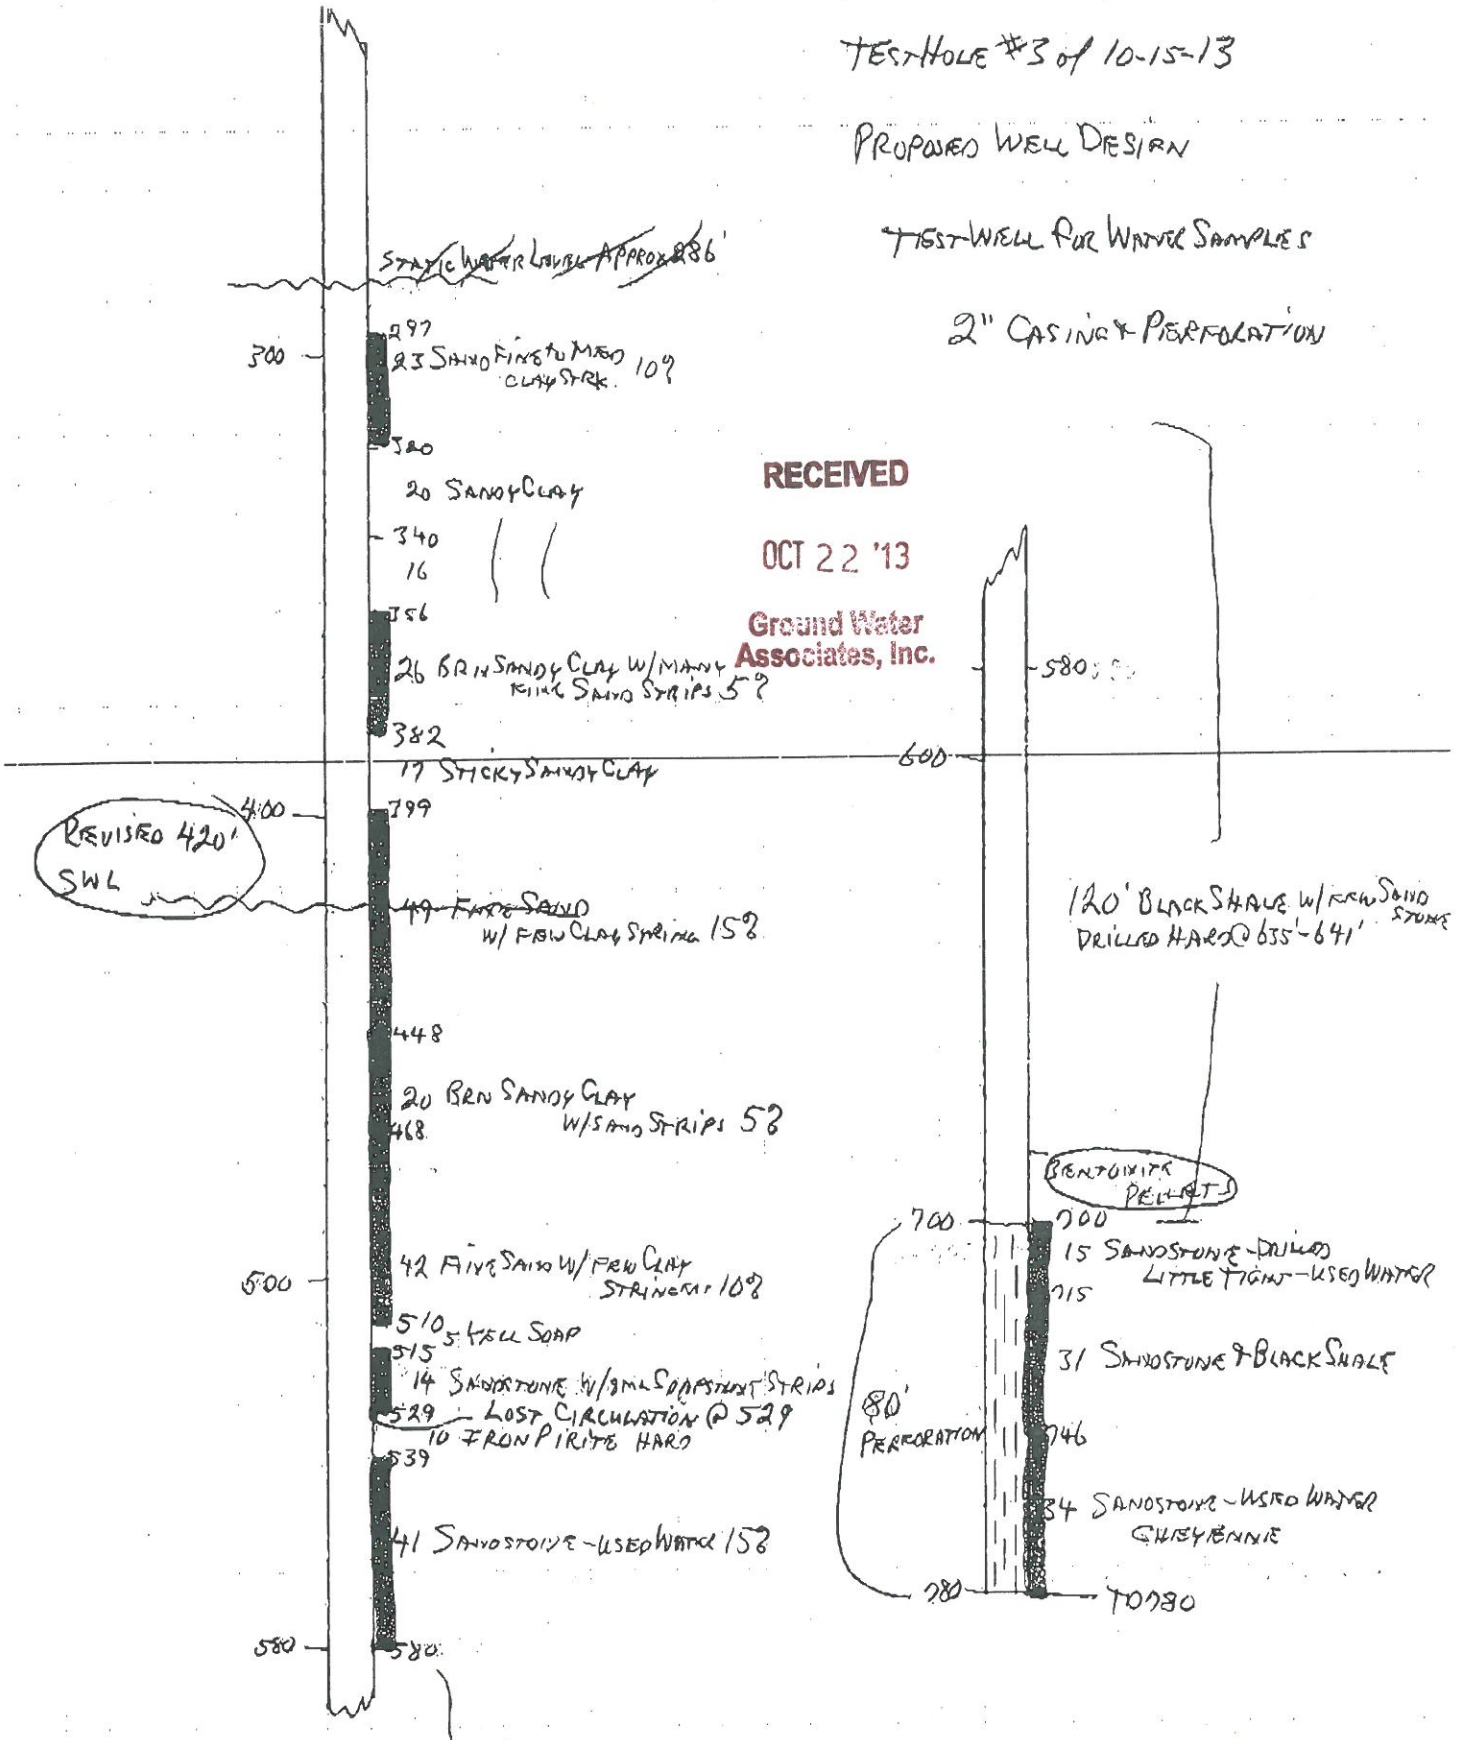 TEST HOLE #3 of 10-15-13
PROPOSED WELL DESIGN
TEST WELL FOR WATER SAMPLES
2" CASING & PERFORATION
STATIC WATER LEVEL APPROX 286'
297
300
23 SAND FINE TO MED
CLAY STRK. 10?
320
20 SANDY CLAY
340
16
356
26 BRN SANDY CLAY W/ MANY
FINE SAND STRIPS 5?
382
17 STICKY SANDY CLAY
400
399
REVISED 420'
SWL
49 FINE SAND
W/ FEW CLAY STRING 15?
448
20 BRN SANDY CLAY
W/ SAND STRIPS 5?
468
42 FINE SAND W/ FEW CLAY
STRINGERS 10?
500
510
5 YELL SOAP
515
14 SANDSTONE W/ SML SOAPSTONE STRIPS
529 - LOST CIRCULATION @ 529
10 IRON PIRITE HARD
539
41 SANDSTONE - USED WATER 15?
580
580
RECEIVED
OCT 22 '13
Ground Water
Associates, Inc.
580
600
120' BLACK SHALE W/ FEW SAND
STONE
DRILLED HARD @ 635'-641'
BENTONITE
PELLETS
700
700
15 SANDSTONE - DRILLED
LITTLE TIGHT - USED WATER
715
31 SANDSTONE & BLACK SHALE
80'
PERFORATION
746
34 SANDSTONE - USED WATER
CHEYENNE
780
TD 780